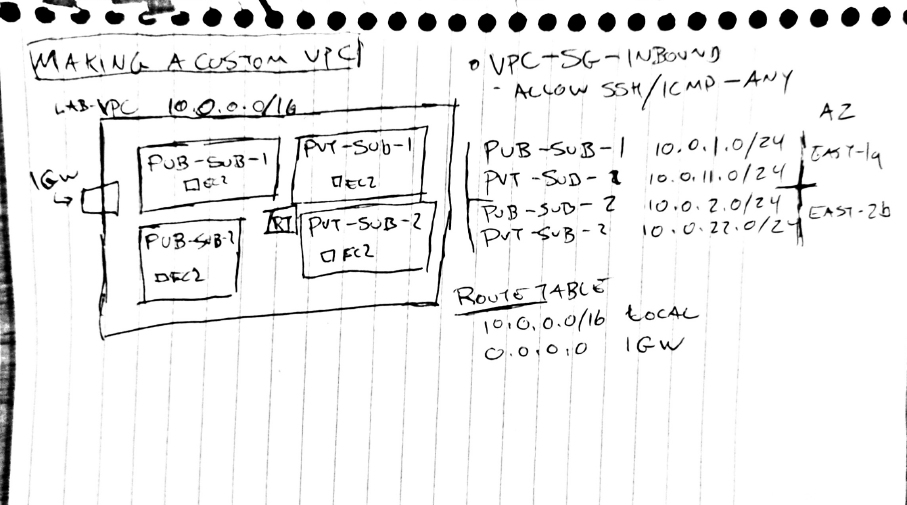 MAKING A CUSTOM VPC
LAB-VPC 10.0.0.0/16
IGW
PUB-SUB-1
EC2
PVT-SUB-1
EC2
PUB-SUB-2
EC2
RT
PVT-SUB-2
EC2
• VPC-SG-INBOUND
- ALLOW SSH/ICMP-ANY
AZ
PUB-SUB-1 10.0.1.0/24
PVT-SUB-1 10.0.11.0/24
EAST-1a
PUB-SUB-2 10.0.2.0/24
PVT-SUB-2 10.0.22.0/24
EAST-2b
ROUTE TABLE
10.0.0.0/16 LOCAL
0.0.0.0 IGW